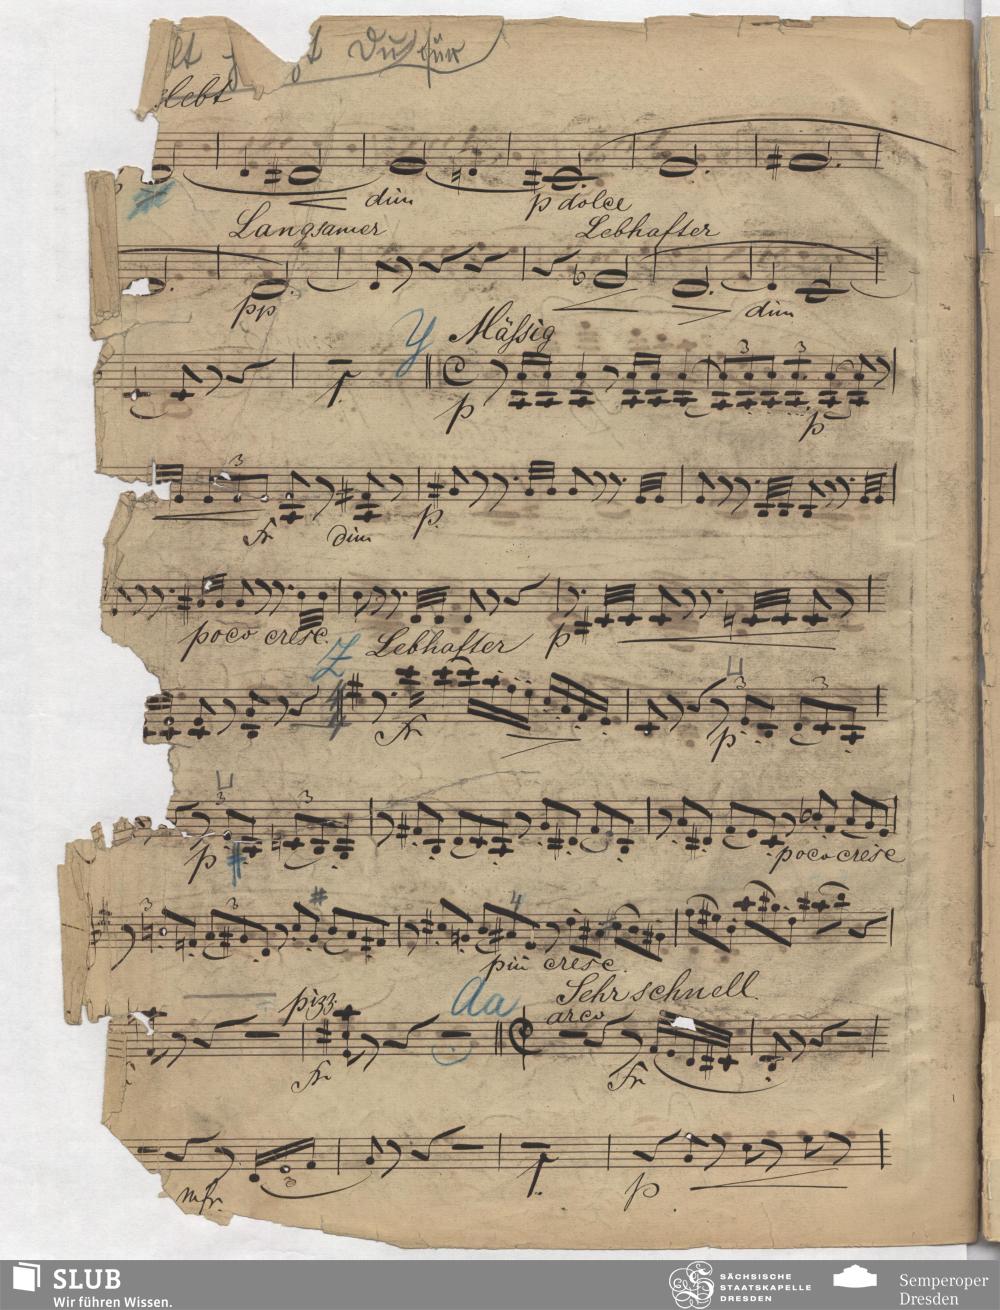 Du für
lebt
dim p dolce
Langsamer Lebhafter
pp dim
Y Mässig
3 3
p p
3
fr dim p
poco cresc. p
Z Lebhafter
3 3
fr p
3 3
p poco cresc
3 3 4
più cresc.
pizz. Aa Sehr schnell
arco
fr fr
3
mfr. 1. p
SLUB
Wir führen Wissen.
SÄCHSISCHE
STAATSKAPELLE
DRESDEN
Semperoper
Dresden